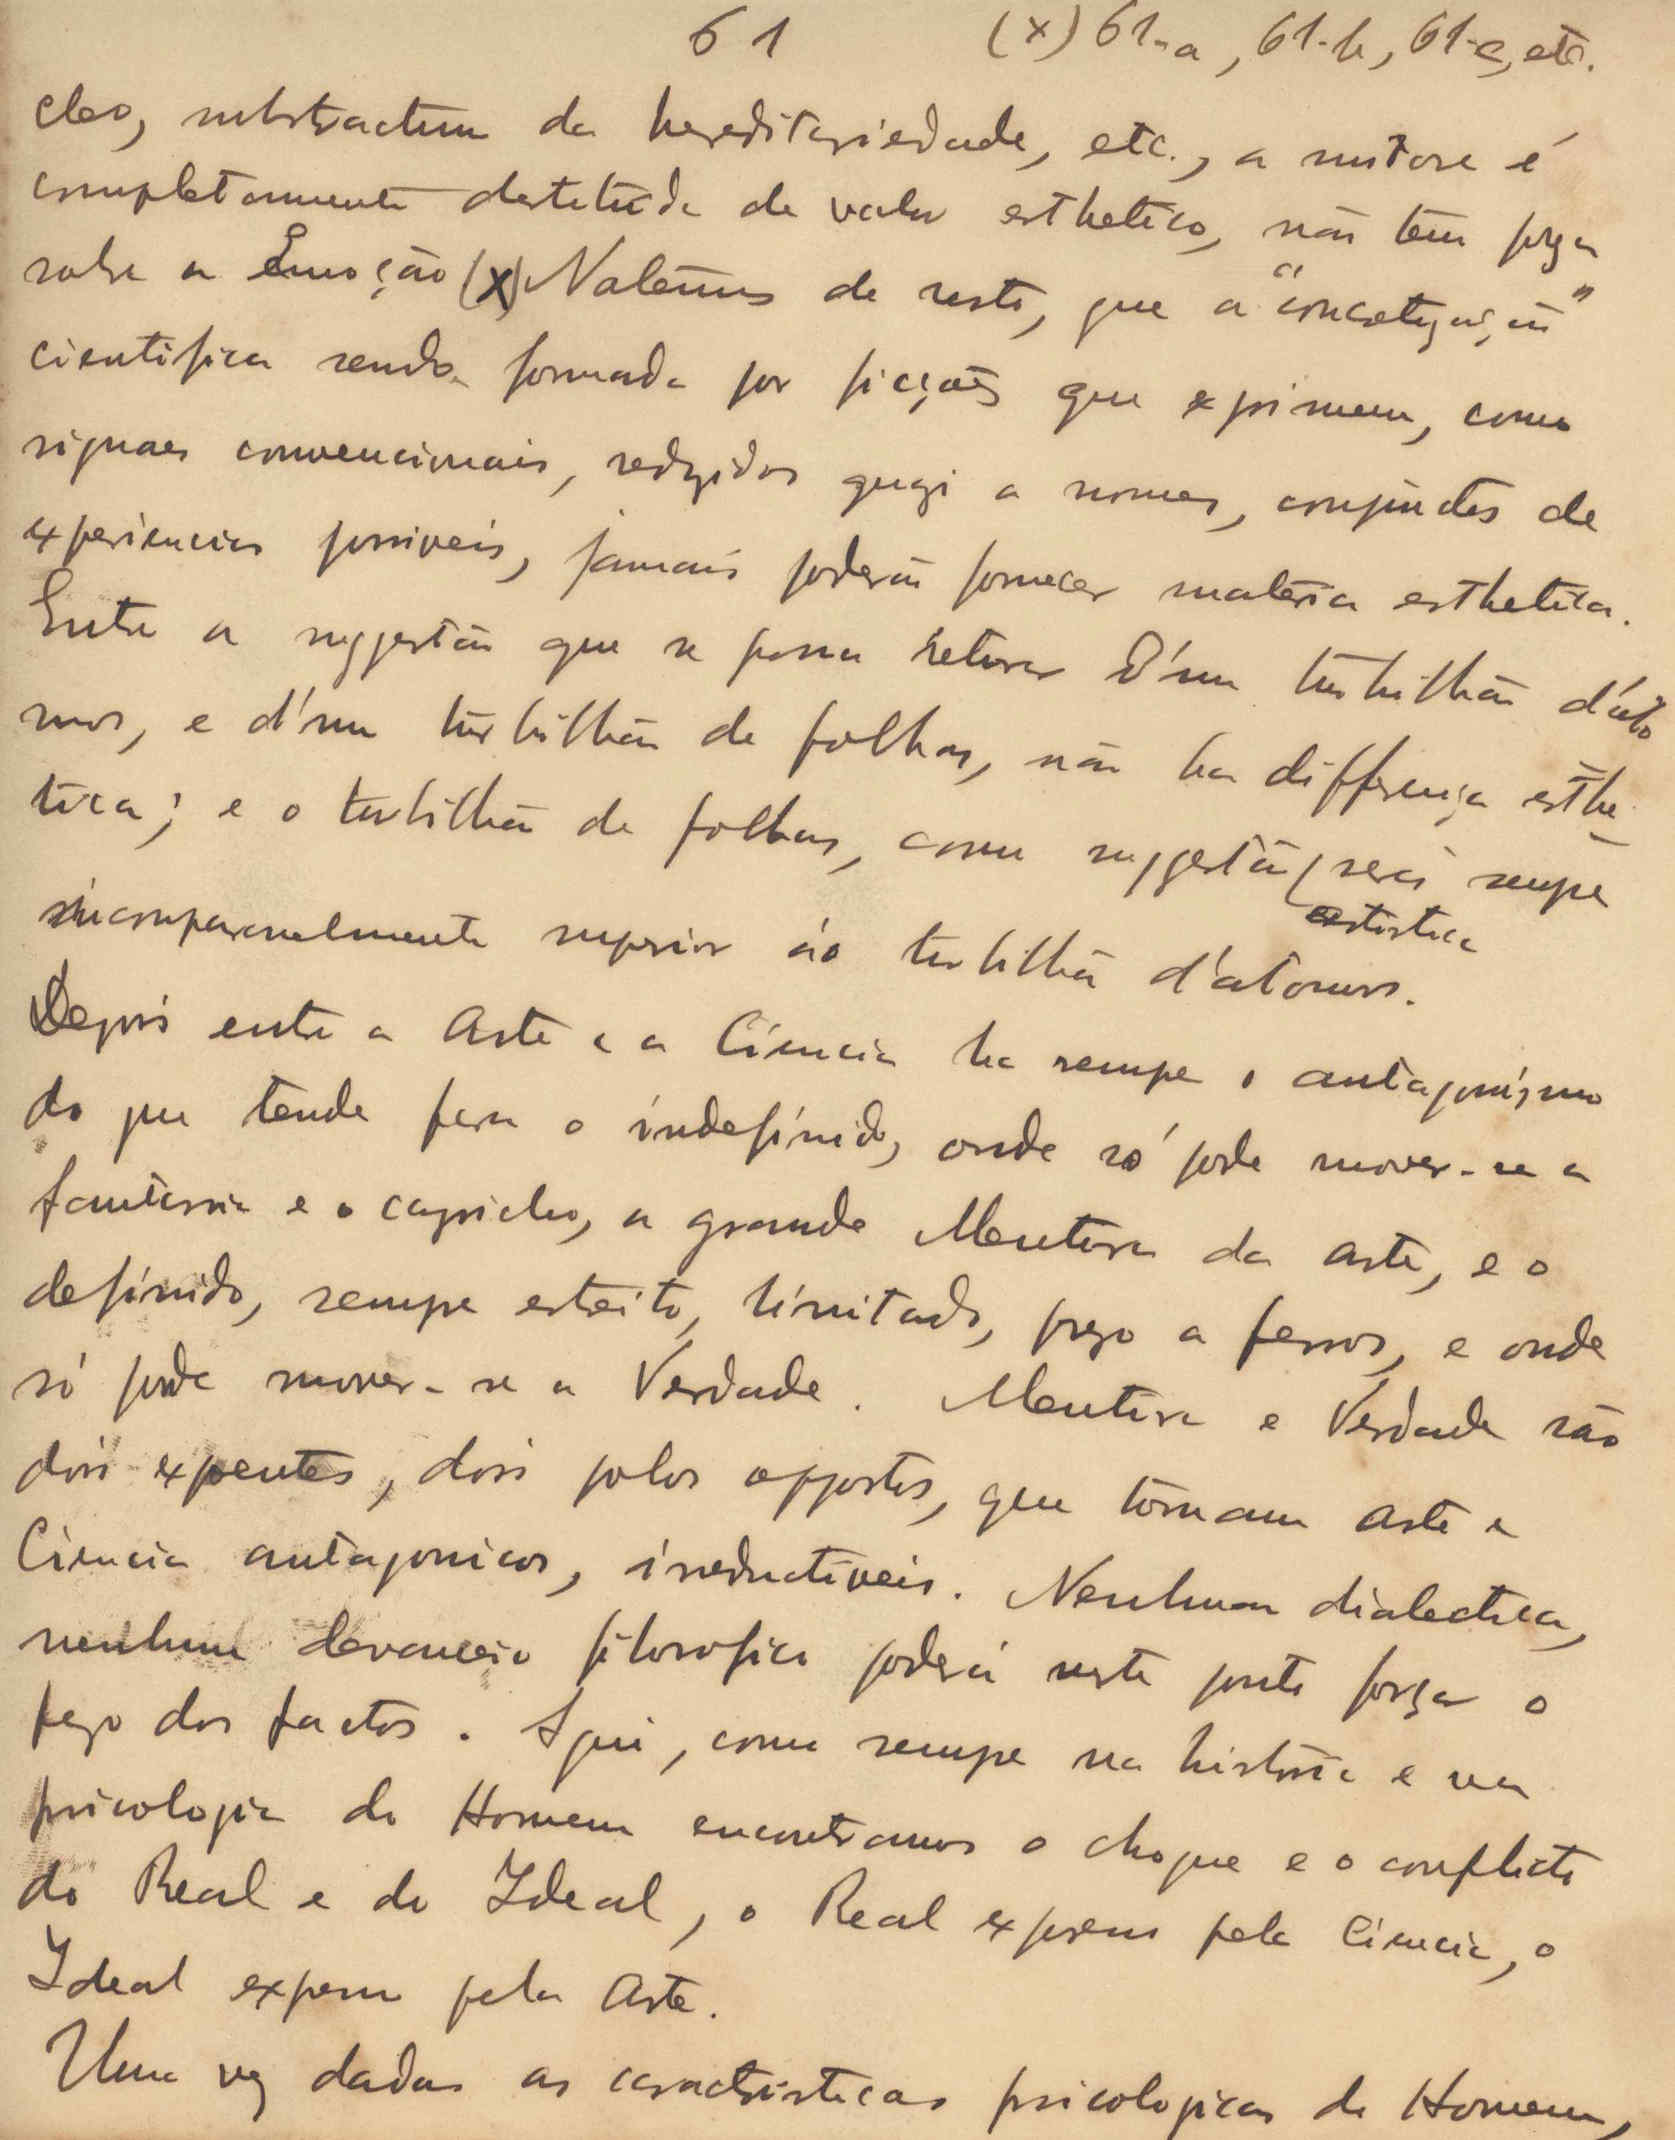 61 (x) 61-a, 61-b, 61-c, etc.
cleo, substractum da hereditariedade, etc., a nutose é
completamente destituida de valor esthetico, não tem força
sobre a Emoção (x) Notemos de resto, que a "
cientifica sendo formada por ficções que exprimem, como
signaes convencionais, redzidos quazi a nomes, conjunctos de
experiencias possiveis, jamais poderão fornecer materia esthetica.
Entre a suggestão que se possa retirar d'um turbilhão d'áto
mos, e d'um turbilhão de folhas, não ha differença esthe-
tica; e o turbilhão de folhas, como suggestão será sempre
artistica
incomparavelmente superior ao turbilhão d'atomos.
Depois entre a Arte e a Ciencia ha sempre o antagonismo
do que tende para o indefinido, onde só pode mover-se a
fantasia e o capricho, a grande Mentira da arte, e o
definido, sempre estreito, limitado, prezo a ferros, e onde
só pode mover-se a Verdade. Mentira e Verdade são
dois expoentes, dois polos oppostos, que tornam Arte e
Ciencia antagonicos, irreductiveis. Nenhuma dialectica,
nenhum devaneio filosofico poderá neste ponto forçar o
pezo dos factos. Aqui, como sempre na historia e na
psicologia do Homem encontramos o choque e o conflicto
do Real e do Ideal, o Real expresso pela Ciencia, o
Ideal expresso pela Arte.
Uma vez dadas as caracteristicas psicologicas do Homem,